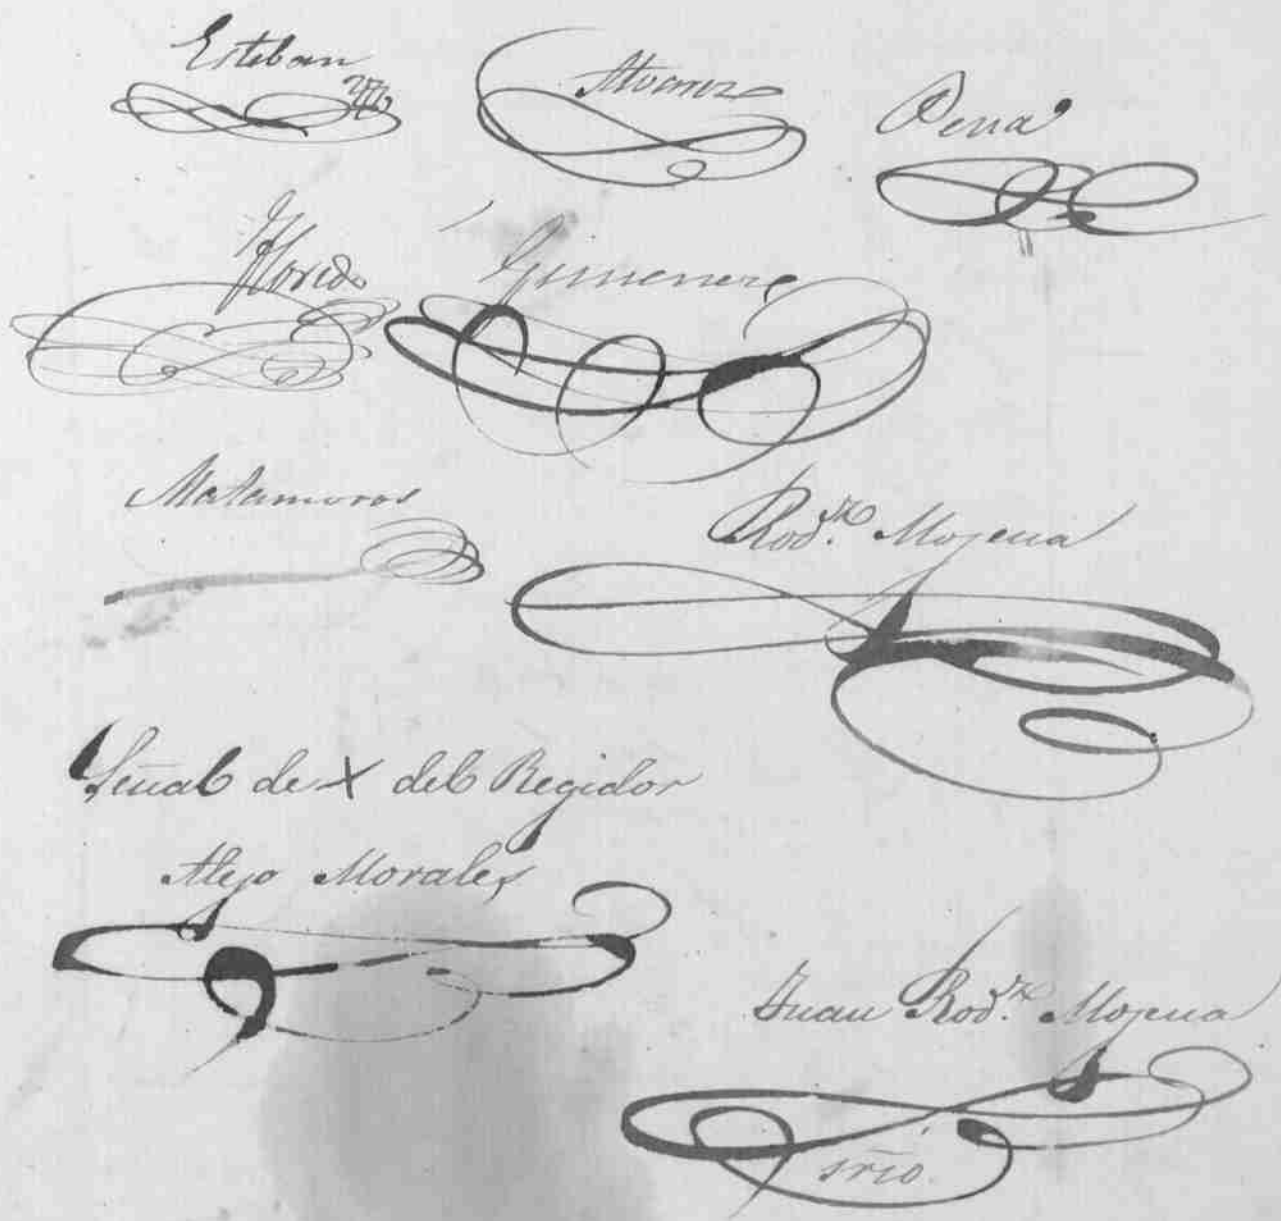 Esteban
Alvarez
Pena
Florido
Gimenez
Matamoros
Rod.z Mojena
Señal de X del Regidor
Alejo Morales
Juan Rod.z Mojena
srio.